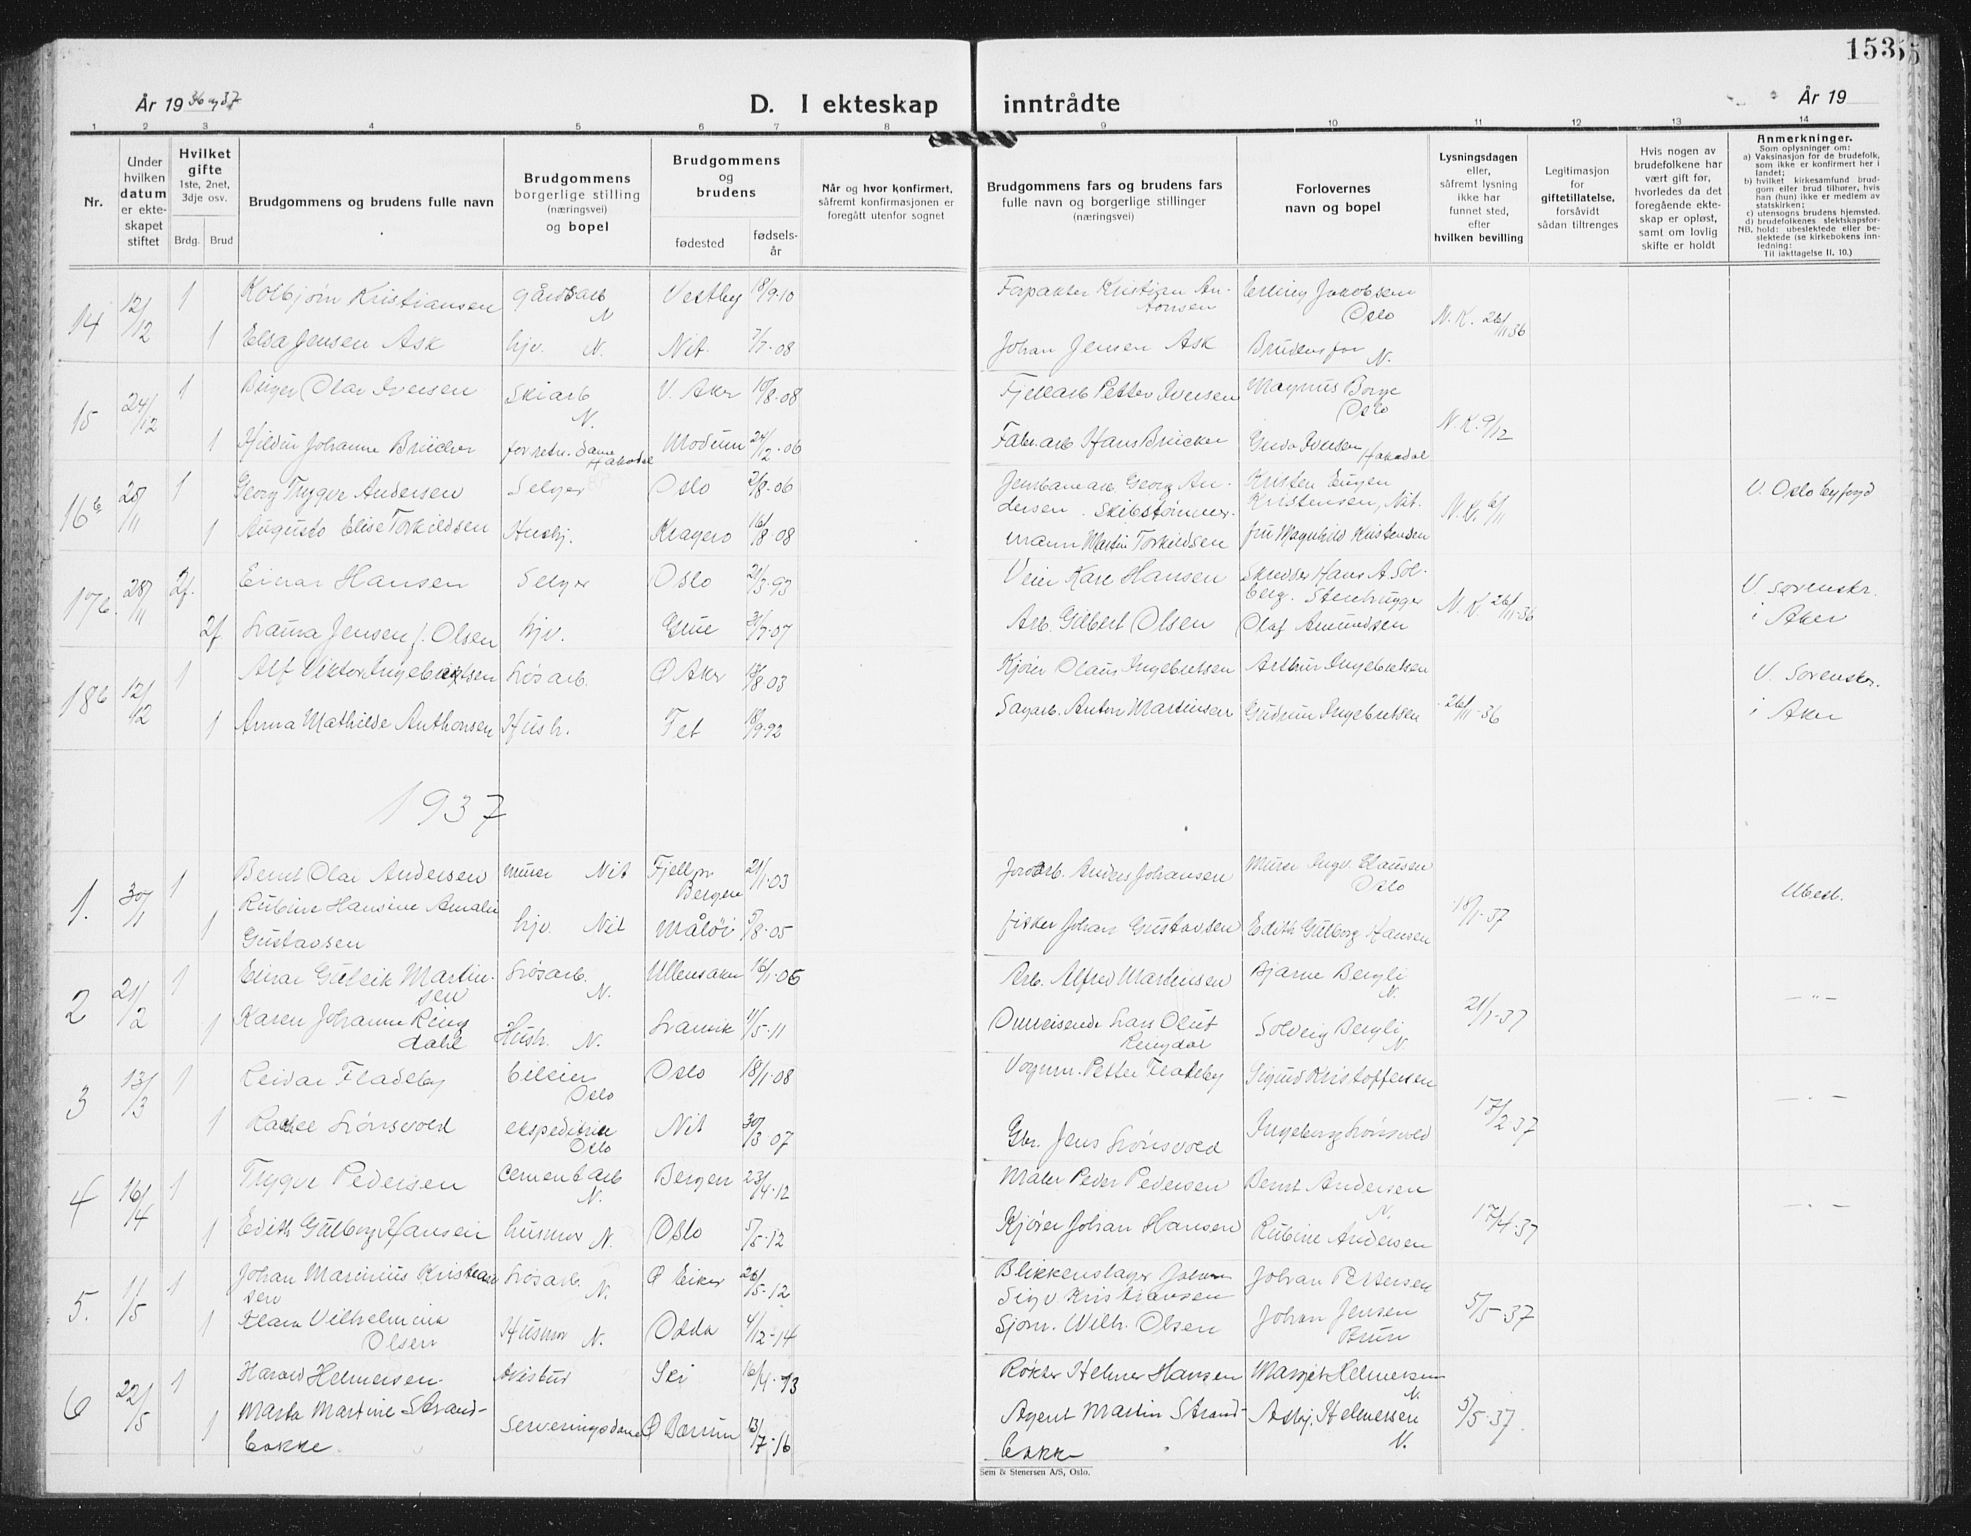 153
År 19 36 og 37
D. I ekteskap inntrådte
År 19
1 2 3 4 5 6 7 8 9 10 11 12 13 14
Nr.
Under hvilken datum er ekteskapet stiftet
Hvilket gifte
1ste, 2net, 3dje osv.
Brdg. Brud
Brudgommens og brudens fulle navn
Brudgommens borgerlige stilling (næringsvei) og bopel
Brudgommens og brudens
fødested
fødselsår
Når og hvor konfirmert, såfremt konfirmasjonen er foregått utenfor sognet
Brudgommens fars og brudens fars fulle navn og borgerlige stillinger (næringsvei)
Forlovernes navn og bopel
Lysningsdagen eller, såfremt lysning ikke har funnet sted, efter hvilken bevilling
Legitimasjon for giftetillatelse, forsåvidt sådan tiltrenges
Hvis nogen av brudefolkene har vært gift før, hvorledes da det foregående ekteskap er opløst, samt om lovlig skifte er holdt
Anmerkninger.
Som oplysninger om:
a) Vaksinasjon for de brudefolk, som ikke er konfirmert her i landet;
b) hvilket kirkesamfund brudgom eller brud tilhører, hvis han (hun) ikke er medlem av statskirken;
c) utensogns brudens hjemsted.
d) brudefolkenes slektskapsforhold: ubeslektede eller beslektede (se kirkebokens innledning:
NB.
Til iakttagelse II. 10.)
14 12/12 1 Kolbjørn Kristiansen gårdsarb N Vestby 18/9-10 Forpakter Kristian Antonsen Erling Jakobsen Oslo N.K. 26/11 36
1 Elsa Jensen Ask hjv. N. Nit. 7/7-08 Johan Jensen Ask Brudens far N.
15 24/12 1 Birger Olav Iversen Skiarb N. V. Aker 10/8-08 Fjellarb Petter Iversen Magnus Borge Oslo N.K. 9/12
1 Johanne forretn.dame Hakadal Modum 24/12-06 Fabr.arb Hans Iversen Hakadal
16 b 1 Georg Trygve Andersen Selger Oslo 2/8-06 Jernbanearb. Georg Andersen. Kristen Eugen Kristensen, Nit. N.K. 6/11 V. Oslo byfogd
1 Elise Torkildsen Husbj. Kragerø 16/8-08 Skibstømmermann Martin Torkildsen fru Magnhild Kristensen
17 b. 28/11 2f. Einar Hansen Selger Oslo 21/3-93 Veier Karl Hansen Skredder Hans A. Solberg. N.K 26/11-36 V. sorenskr. i Aker
2f Laura Jensen f. Olsen hjv. Grue Arb. Gilbert Olsen Olaf Amundsen
18 b 12/12 1 Alf Viktor Ingebretsen Løsarb. Ø Aker 18/8-03 Kjører Olaus Ingebretsen Arthur Ingebretsen 26/11-36 V. Sorenskr. i Aker
1 Anna Mathilde Anthonsen Hush. Fet 18/9-92 Sagarb. Anton Martinsen Gudrun Ingebretsen
1937
1. 30/1 1 Bernt Olav Andersen murer Nit Bergen 21/1-03 Jordarb. Anders Johansen Murer Ingv. Clausen Oslo 18/1-37 Ubesl.
1 Rubine Hansine Amalie Gustavsen hjv. Nit Måløi 5/8-05 fisker Johan Gustavsen Edith Gulborg Hansen
2 21/2 1 Einar Gulbrik Martinsen Løsarb. N. Ullensaker 16/1-06 Arb. Alfred Martinsen Bjarne Bergli N. 21/1-37 —"—
1 Karen Johanne Ringdahl Hush. N. Larvik 11/5-11 Omreisende Lars Oluf Ringdal Solveig Bergli N.
3 13/3 1 Reidar Fladeby bileier Oslo Oslo 18/1-08 Vognm. Petter Fladeby Sigurd Kristoffersen 17/2 37 —"—
1 Lønsvold ekspeditrise Oslo Nit 30/3 07 Gbr. Jens Lønsvold Ingeborg Lønsvold
4 16/4 1 Trygve Pedersen cementarb N. Bergen 23/4-12 Maler Peder Pedersen Bernt Andersen N. 17/4-37 —"—
1 Edith Gulborg Hansen husmor N. Oslo 5/5-12 Kjører Johan Hansen Rubine Andersen
5. 1/5 1 Johan Marinius Kristiansen Løsarb. N. Ø Eiker 26/5-12 Blikkenslager Johan Sigv. Kristiansen Johan Pettersen 5/5-37
1 Klara Vilhelmine Olsen Husmor N. Odda 4/12-14 Sjøm. Wilh. Olsen Johan Jensen Brun
6 22/5 1 Harald Helmersen. Ski 16/4-13 Røkter Helmer Hansen Margit Helmersen N. 5/5-37.
1 Marta Martine Strandbakke. Serveringsdame Ø Bærum 13/7-16 Agent Martin Strandbakke Asbj. Helmersen N.
Sem & Stenersen A/S, Oslo.